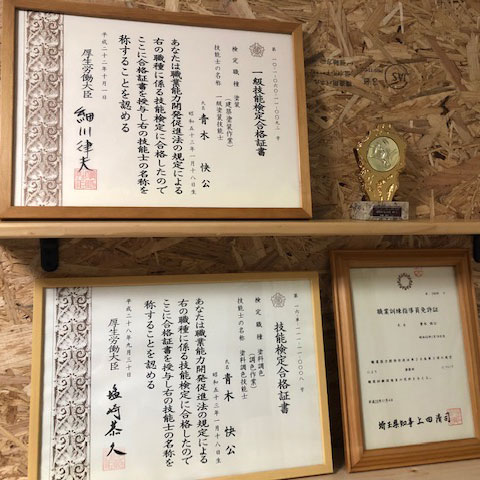 一級技能検定合格証書
検定職種 塗装
(建築塗装作業)
技能士の名称 一級塗装技能士
氏名 青木 快公
昭和五十三年一月十八日生
あなたは職業能力開発促進法の規定による
右の職種に係る技能検定に合格したので
ここに合格証書を授与し右の技能士の名称を
称することを認める
平成二十二年十月一日
厚生労働大臣
細川律夫
技能検定合格証書
検定職種 塗料調色
(調色作業)
技能士の名称 塗料調色技能士
氏名 青木 快公
昭和五十三年一月十八日生
あなたは職業能力開発促進法の規定による
右の職種に係る技能検定に合格したので
ここに合格証書を授与し右の技能士の名称を
称することを認める
平成二十八年九月三十日
厚生労働大臣
塩崎恭久
職業訓練指導員免許証
埼玉県知事 上田清司